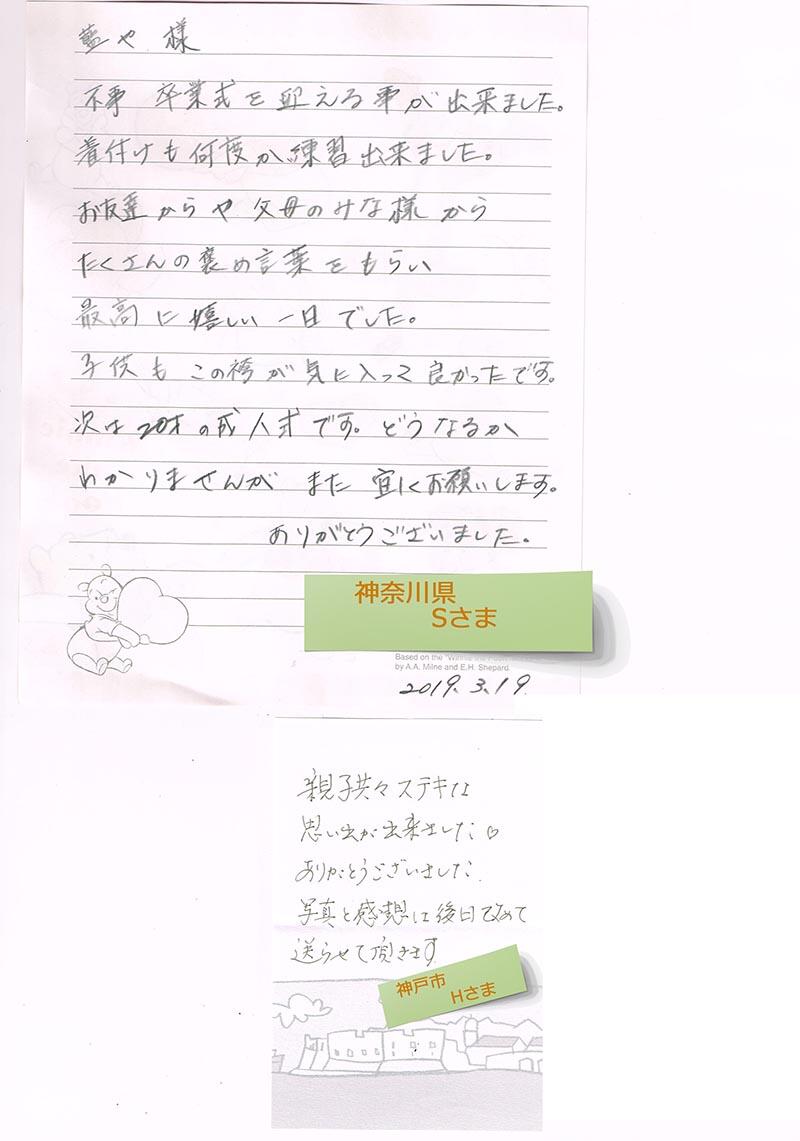 藍や 様
不事 卒業式を迎える事が出来ました。
着付けも何度か練習出来ました。
お友達からや父母のみな様から
たくさんの褒め言葉をもらい
最高に嬉しい一日でした。
子供もこの袴が気に入って良かったです。
次は20才の成人式です。どうなるか
わかりませんが また 宜しくお願いします。
ありがとうございました。
神奈川県
Sさま
Based on the "Winnie the Pooh"
by A.A. Milne and E.H. Shepard.
2019.3.19
親子共々ステキな
思い出が出来ました♡
ありがとうございました
写真と感想は後日改めて
送らせて頂きます
神戸市
Hさま